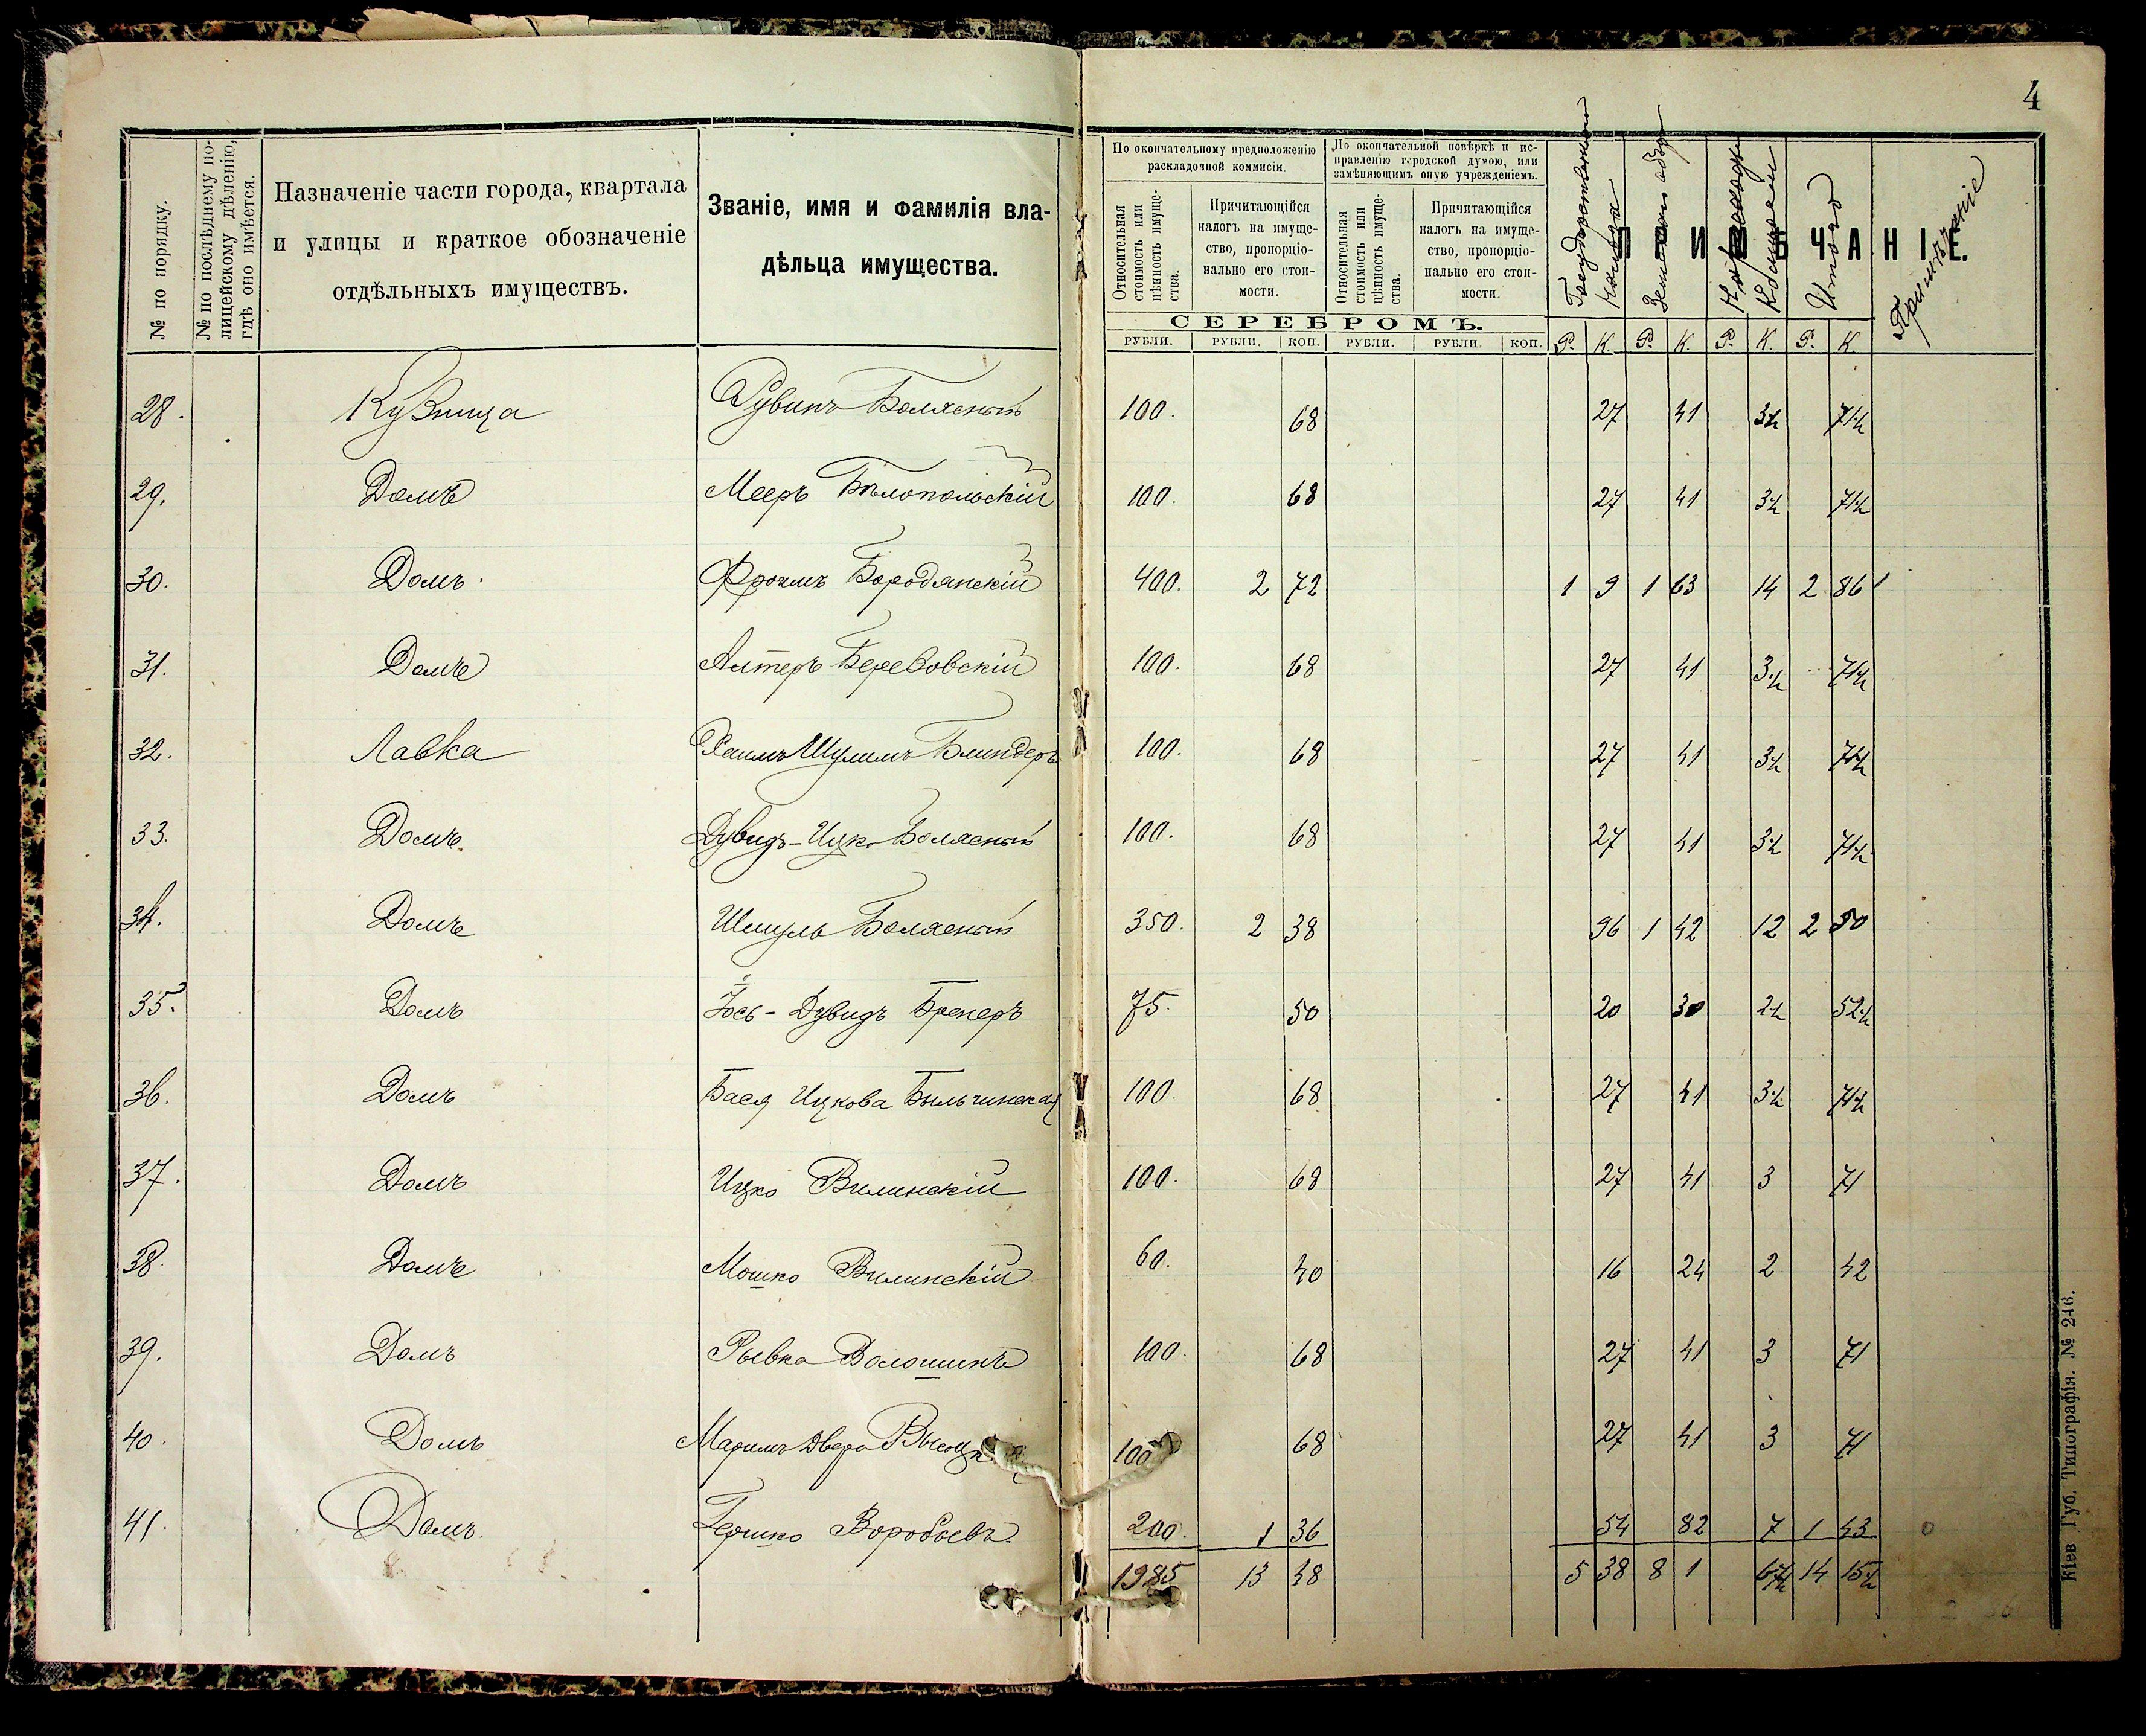 4
№ по порядку.
№ по послѣднему по-
лицейскому дѣленію,
гдѣ оно имѣется.
Назначеніе части города, квартала
и улицы и краткое обозначеніе
отдѣльныхъ имуществъ.
Званіе, имя и фамилія вла-
дѣльца имущества.
По окончательному предположенію
раскладочной коммисіи.
По окончательной повѣркѣ и ис-
правленію городской думою, или
замѣняющимъ оную учрежденіемъ.
Относительная
стоимость или
цѣнность имуще-
ства.
Причитающійся
налогъ на имуще-
ство, пропорціо-
нально его стои-
мости.
Относительная
стоимость или
цѣнность имуще-
ства.
Причитающійся
налогъ на имуще-
ство, пропорціо-
нально его стои-
мости.
ПРИМѢЧАНІЕ.
Земскаго сбора
Итого
Примѣчаніе
СЕРЕБРОМЪ.
РУБЛИ. РУБЛИ. КОП. РУБЛИ. РУБЛИ. КОП. Р. К. Р. К. Р. К. Р. К.
28. Кузница Рувинъ Болясный 100. 68 27 41 3½ 71½
29. Домъ Мееръ Бѣлопольскій 100. 68 27 41 3½ 71½
30. Домъ Фроимъ Бородянскій 400. 2 72 1 9 1 63 14 2 86
31. Домъ Алтеръ Березовскій 100. 68 27 41 3½ 71½
32. Лавка Хаимъ Шулимъ Блиндеръ 100. 68 27 41 3½ 71½
33. Домъ Дувидъ-Ицко Болясный 100. 68 27 41 3½ 71½
34. Домъ Шмуль Болясный 350. 2 38 96 1 42 12 2 50
35. Домъ Іось-Дувидъ Бренеръ 75. 50 20 30 2½ 52½
36. Домъ Бася Ицкова Быльчинская 100. 68 27 41 3½ 71½
37. Домъ Ицко Вилинскій 100. 68 27 41 3 71
38. Домъ Мошко Вилинскій 60. 40 16 24 2 42
39. Домъ Рывка Волошинъ 100. 68 27 41 3 71
40. Домъ Маримъ Двера 100 68 27 41 3 71
41. Домъ. Гершко Воробьевъ. 200. 1 36 54 82 7 1 43
1985 13 48 5 38 8 1 14 15½
Кіев Губ. Типографія. № 246.